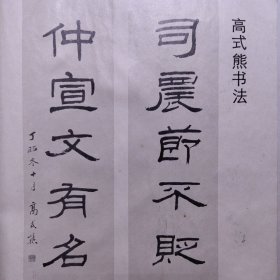 高式熊书法
司農節不貶
仲宣文有名
丁卯冬十月 高式熊